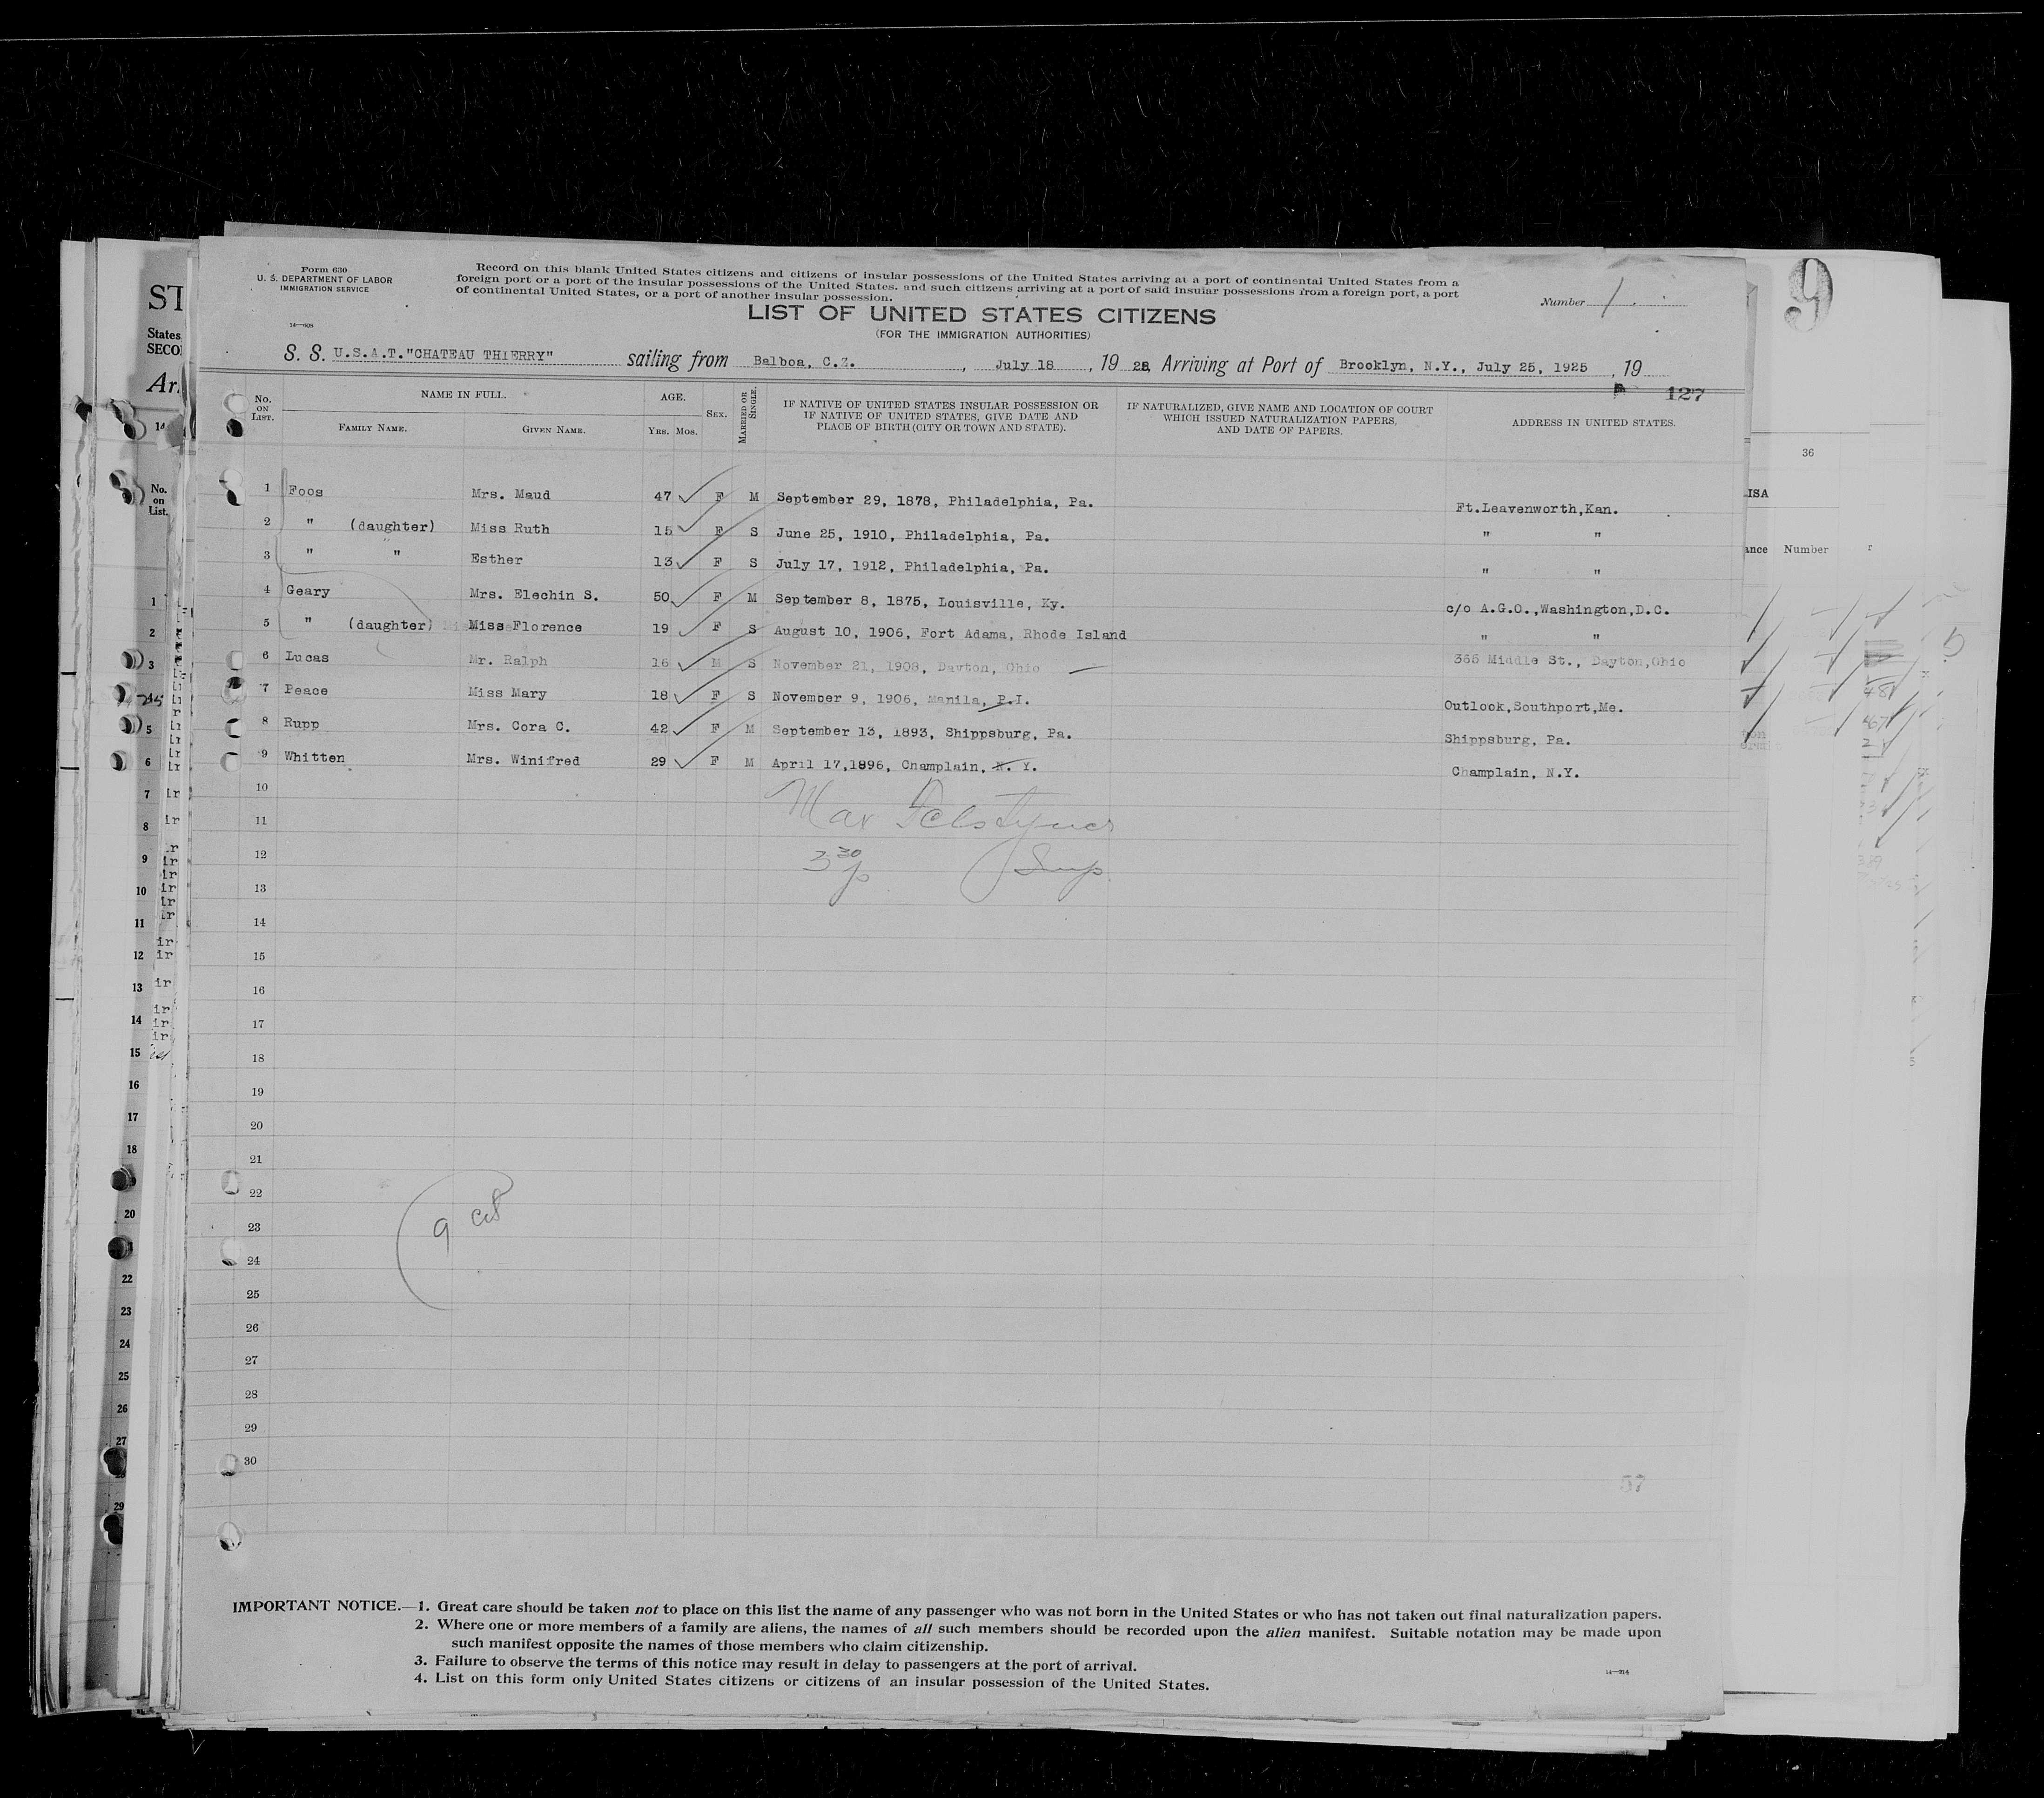 Form 630
U. S. DEPARTMENT OF LABOR
IMMIGRATION SERVICE
Record on this blank United States citizens and citizens of insular possessions of the United States arriving at a port of continental United States from a
foreign port or a port of the insular possessions of the United States, and such citizens arriving at a port of said insular possessions from a foreign port, a port
of continental United States, or a port of another insular possession.
Number 1
14—908
LIST OF UNITED STATES CITIZENS
(FOR THE IMMIGRATION AUTHORITIES)
S. S. U.S.A.T."CHATEAU THIERRY" sailing from Balboa, C.Z. , July 18 , 19 Arriving at Port of Brooklyn, N.Y., July 25, 1925 , 19
127
No. ON LIST. NAME IN FULL. FAMILY NAME. GIVEN NAME. AGE. YRS. MOS. SEX. MARRIED OR SINGLE. IF NATIVE OF UNITED STATES INSULAR POSSESSION OR IF NATIVE OF UNITED STATES, GIVE DATE AND PLACE OF BIRTH (CITY OR TOWN AND STATE). IF NATURALIZED, GIVE NAME AND LOCATION OF COURT WHICH ISSUED NATURALIZATION PAPERS, AND DATE OF PAPERS. ADDRESS IN UNITED STATES.
1 Foos Mrs. Maud 47 F M September 29, 1878, Philadelphia, Pa. Ft.Leavenworth,Kan.
2 " (daughter) Miss Ruth 15 F S June 25, 1910, Philadelphia, Pa. " "
3 " " Esther 13 F S July 17, 1912, Philadelphia, Pa. " "
4 Geary Mrs. Elechin S. 50 F M September 8, 1875, Louisville, Ky. c/o A.G.O.,Washington,D.C.
5 " (daughter) Miss Florence 19 F S August 10, 1906, Fort Adama, Rhode Island " "
6 Lucas Mr. Ralph 16 M S November 21, 1908, Dayton, Ohio 365 Middle St., Dayton,Ohio
7 Peace Miss Mary 18 F S November 9, 1906, Manila, P.I. Outlook,Southport,Me.
8 Rupp Mrs. Cora C. 42 F M September 13, 1893, Shippsburg, Pa. Shippsburg, Pa.
9 Whitten Mrs. Winifred 29 F M April 17,1896, Champlain, N. Y. Champlain, N.Y.
10
11 Max
12 3 30 p Insp
13
14
15
16
17
18
19
20
21
22
23 9
24
25
26
27
28
29
30
57
IMPORTANT NOTICE.—1. Great care should be taken not to place on this list the name of any passenger who was not born in the United States or who has not taken out final naturalization papers.
2. Where one or more members of a family are aliens, the names of all such members should be recorded upon the alien manifest. Suitable notation may be made upon
such manifest opposite the names of those members who claim citizenship.
3. Failure to observe the terms of this notice may result in delay to passengers at the port of arrival.
4. List on this form only United States citizens or citizens of an insular possession of the United States.
9
36
Number